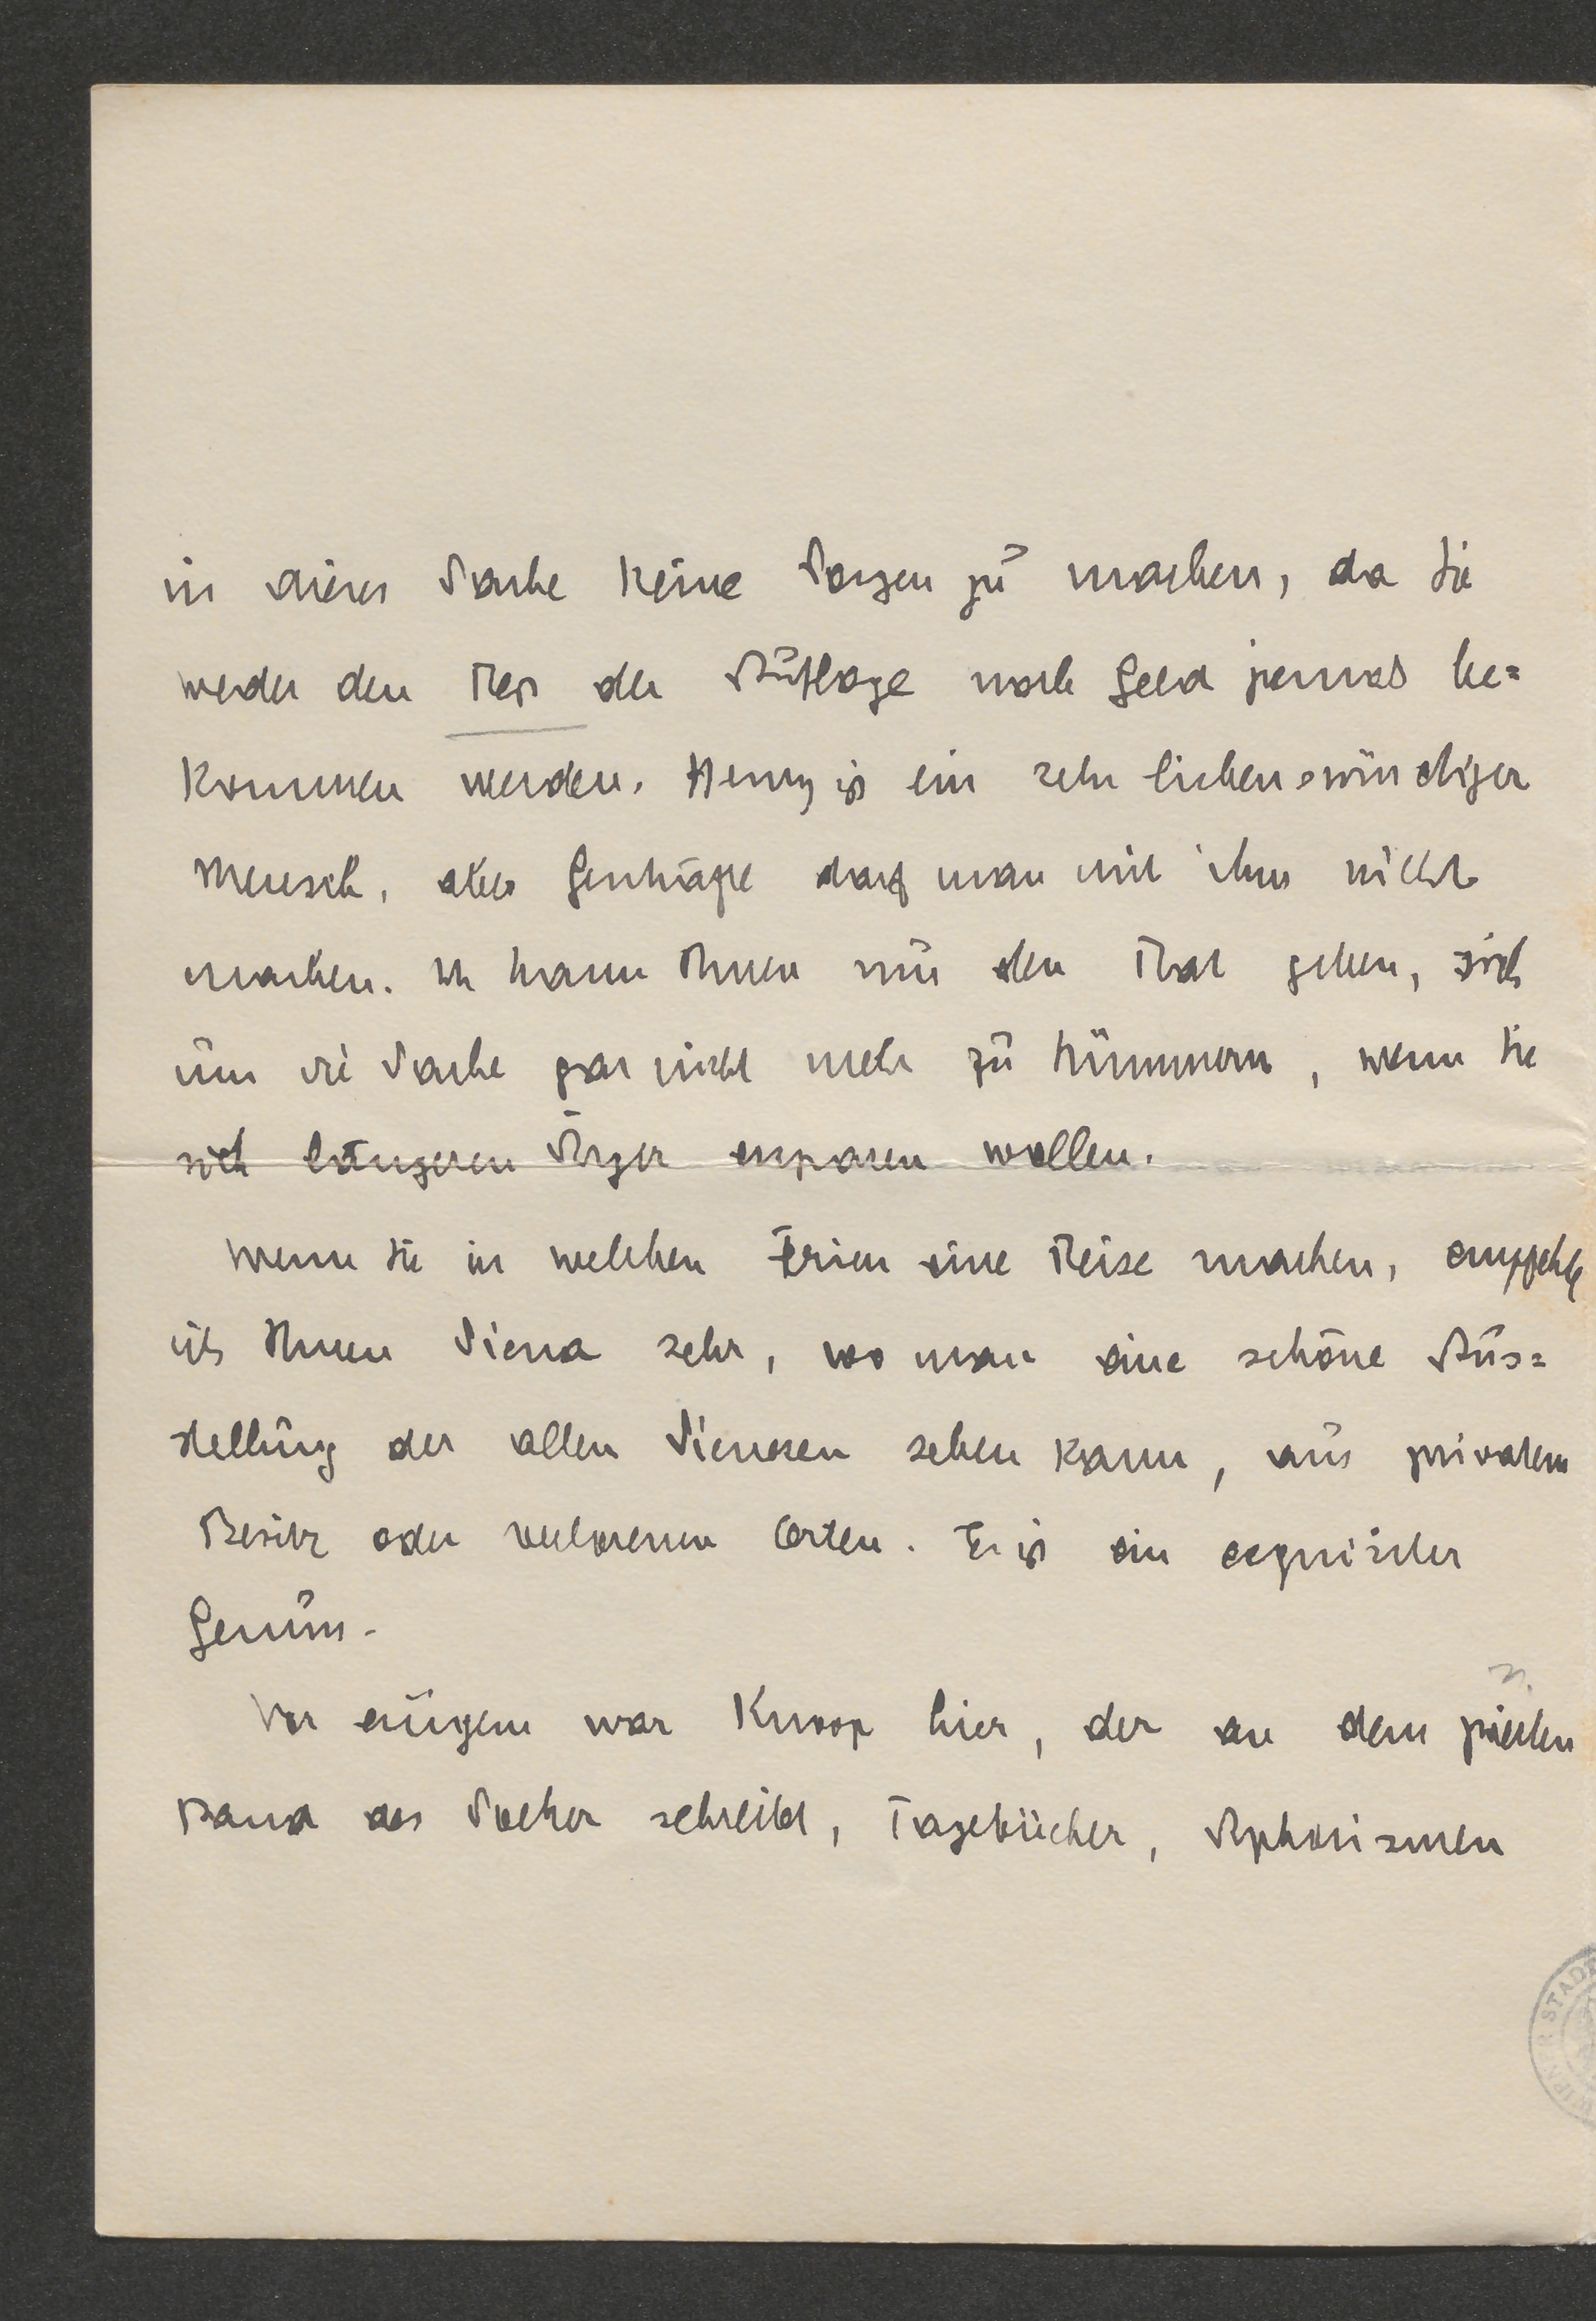 in dieser Sache keine Sorgen zu machen, da Sie
weder den Rest der Auflage noch Geld jemals be=
kommen werden. Henry ist ein sehr liebenswürdiger
Mensch, aber Geschäfte darf man mit ihm nicht
machen. Ich kann Ihnen nur den Rat geben, sich
um die Sache gar nicht mehr zu kümmern, wenn Sie
sich längeren Ärger ersparen wollen.
Wenn Sie in welchen Ferien eine Reise machen, empfehle
ich Ihnen Siena sehr, wo man eine schöne Aus=
stellung der alten Sienesen sehen kann, aus privatem
Besitz oder verlorenen Orten. Es ist ein exquisiter
Genuss.
Vor einigem war Knoop hier, der an dem zweiten
Band des Soeker schreibt, Tagebücher, Aphorismen